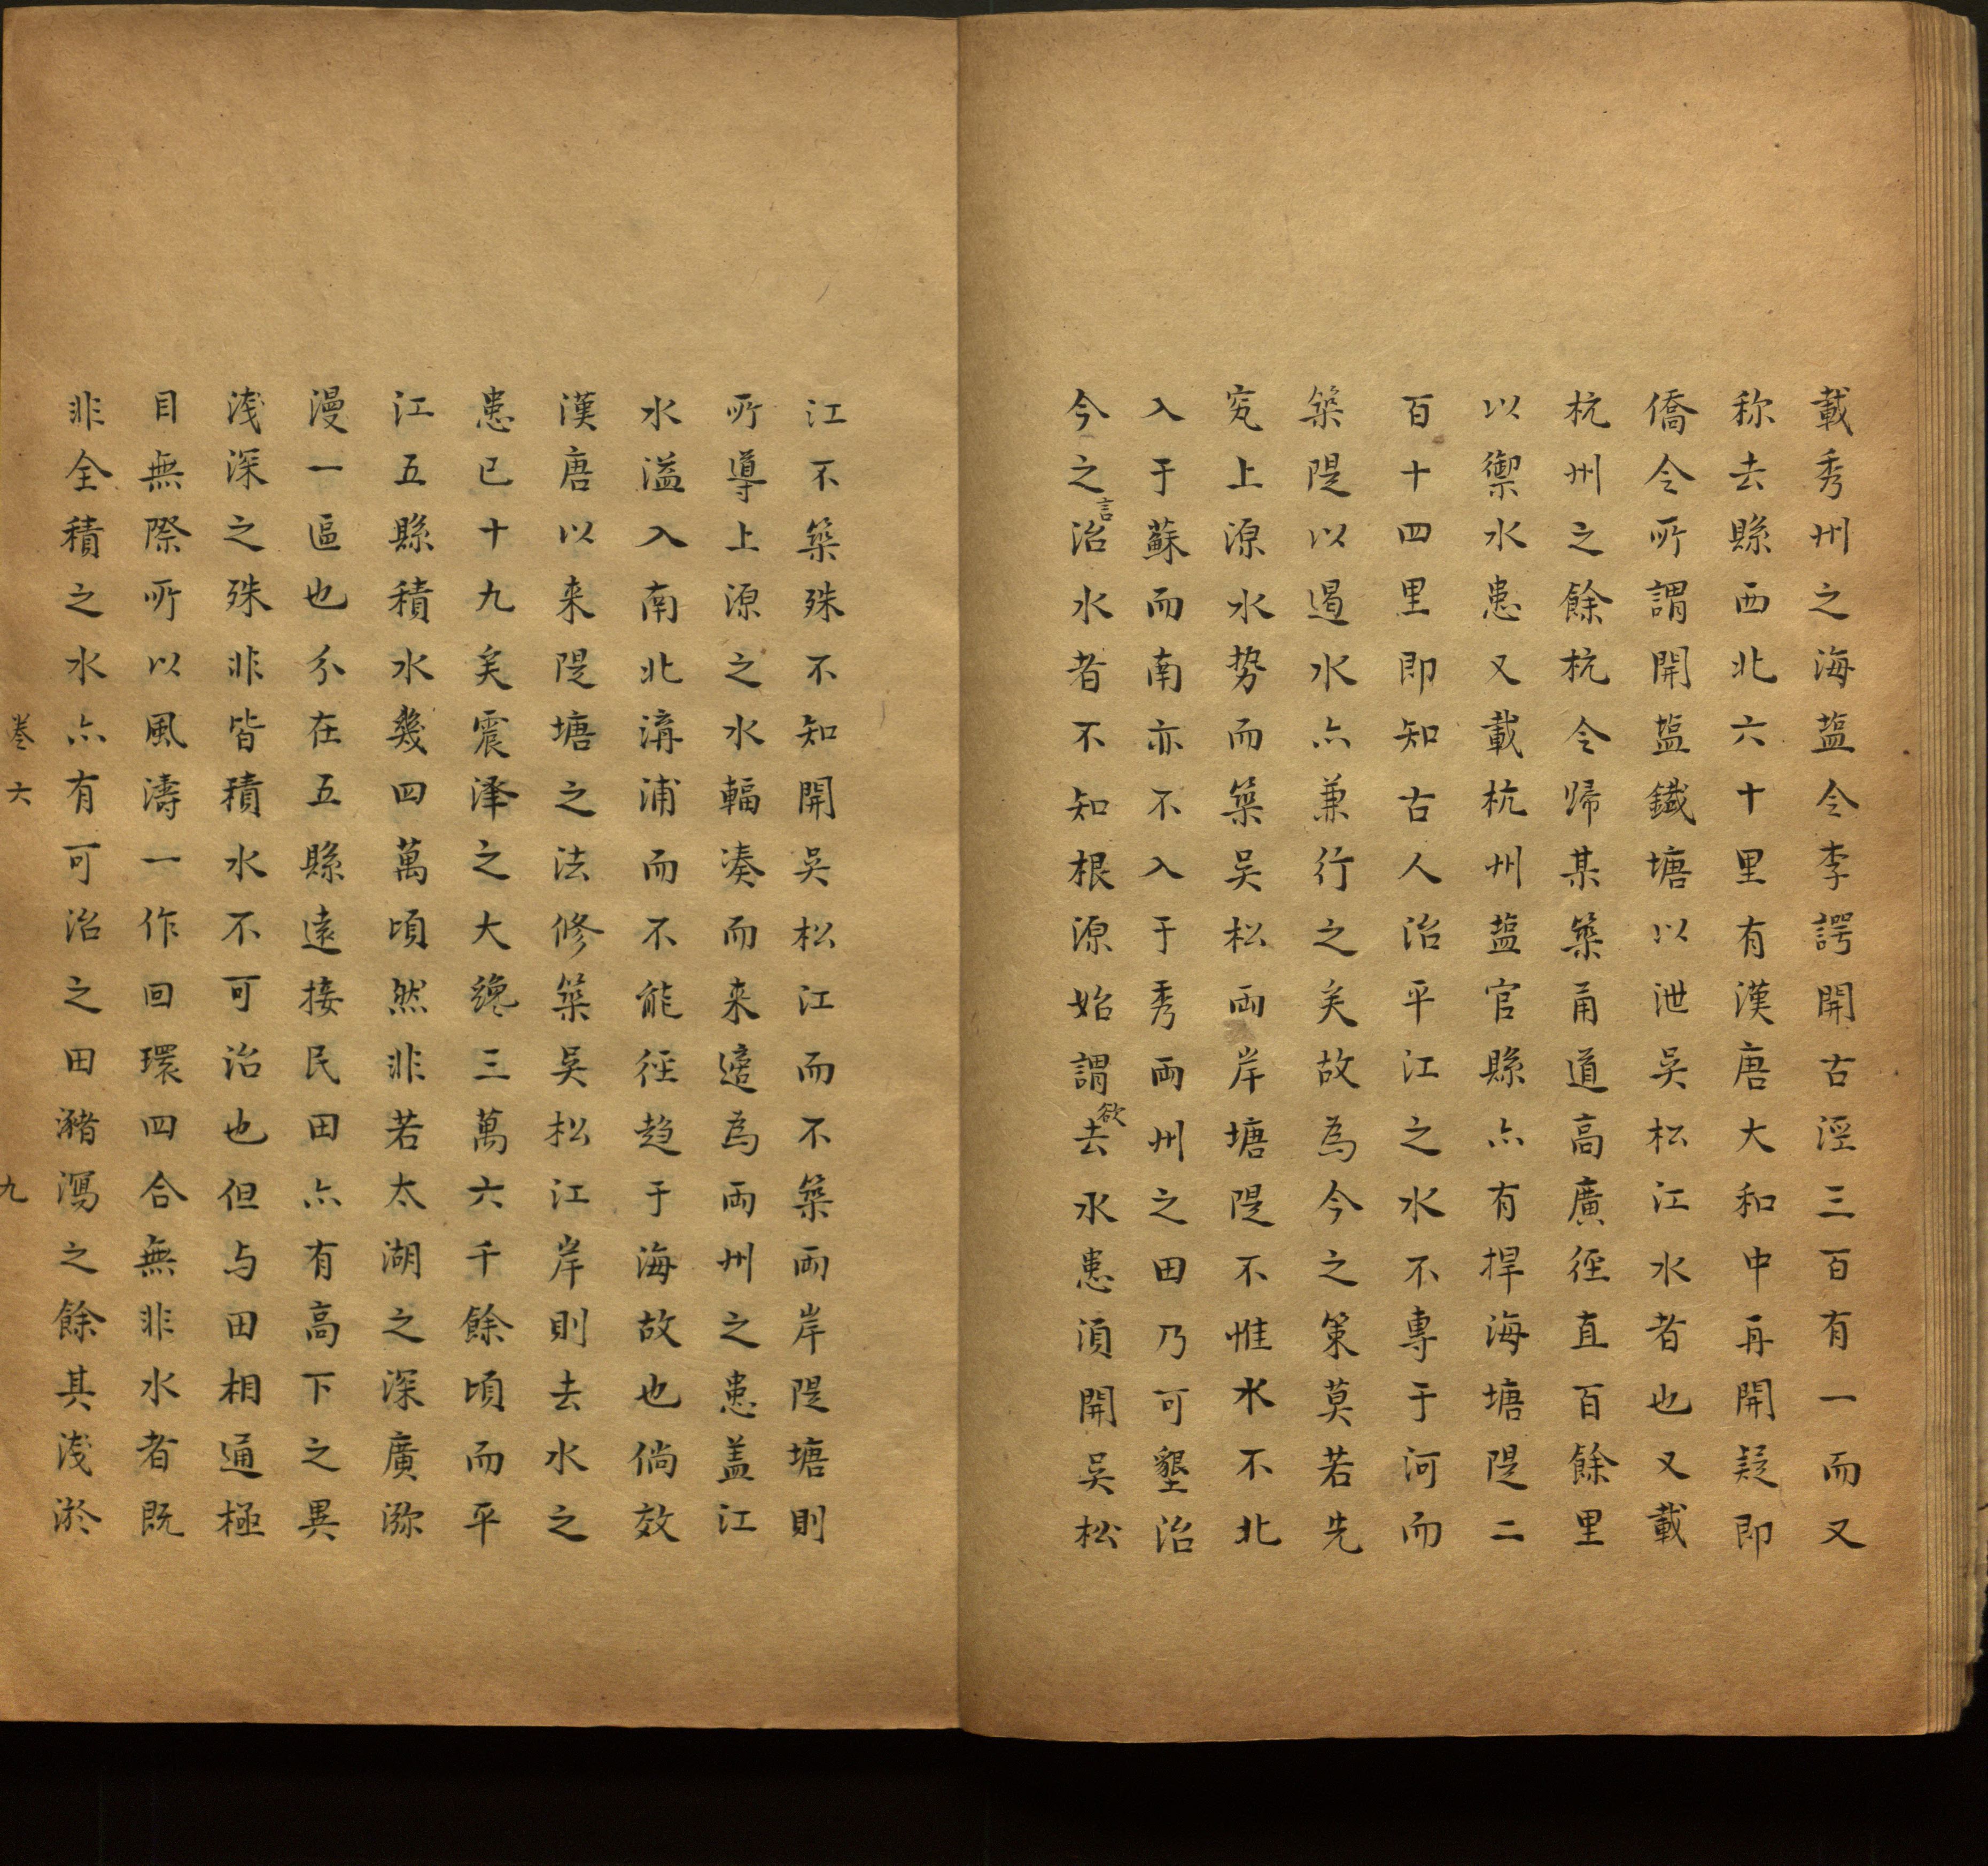 載秀州之海塩令李諤開古涇三百有一而又
称去縣西北六十里有漢唐大和中再開疑即
僑令所謂開塩鐵塘以泄吳松江水者也又載
杭州之餘杭令歸某築甬道高廣徑直百餘里
以禦水患又載杭州塩官縣亦有捍海塘隄二
百十四里即知古人治平江之水不專于河而
築隄以遏水亦兼行之矣故為今之策莫若先
究上源水势而築吳松両岸塘隄不惟水不北
入于蘇而南亦不入于秀両州之田乃可墾治
今之言治水者不知根源始謂欲去水患須開吳松
江不築殊不知開吳松江而不築両岸隄塘則
所導上源之水輻凑而来適為両州之患盖江
水溢入南北溝浦而不能徑趋于海故也倘效
漢唐以来隄塘之法修築吳松江岸則去水之
患已十九矣震泽之大纔三萬六千餘頃而平
江五縣積水幾四萬頃然非若太湖之深廣瀰
漫一區也分在五縣遠接民田亦有高下之異
浅深之殊非皆積水不可治也但与田相通極
目無際所以風濤一作回環四合無非水者既
非全積之水亦有可治之田瀦瀉之餘其浅淤
卷六 九